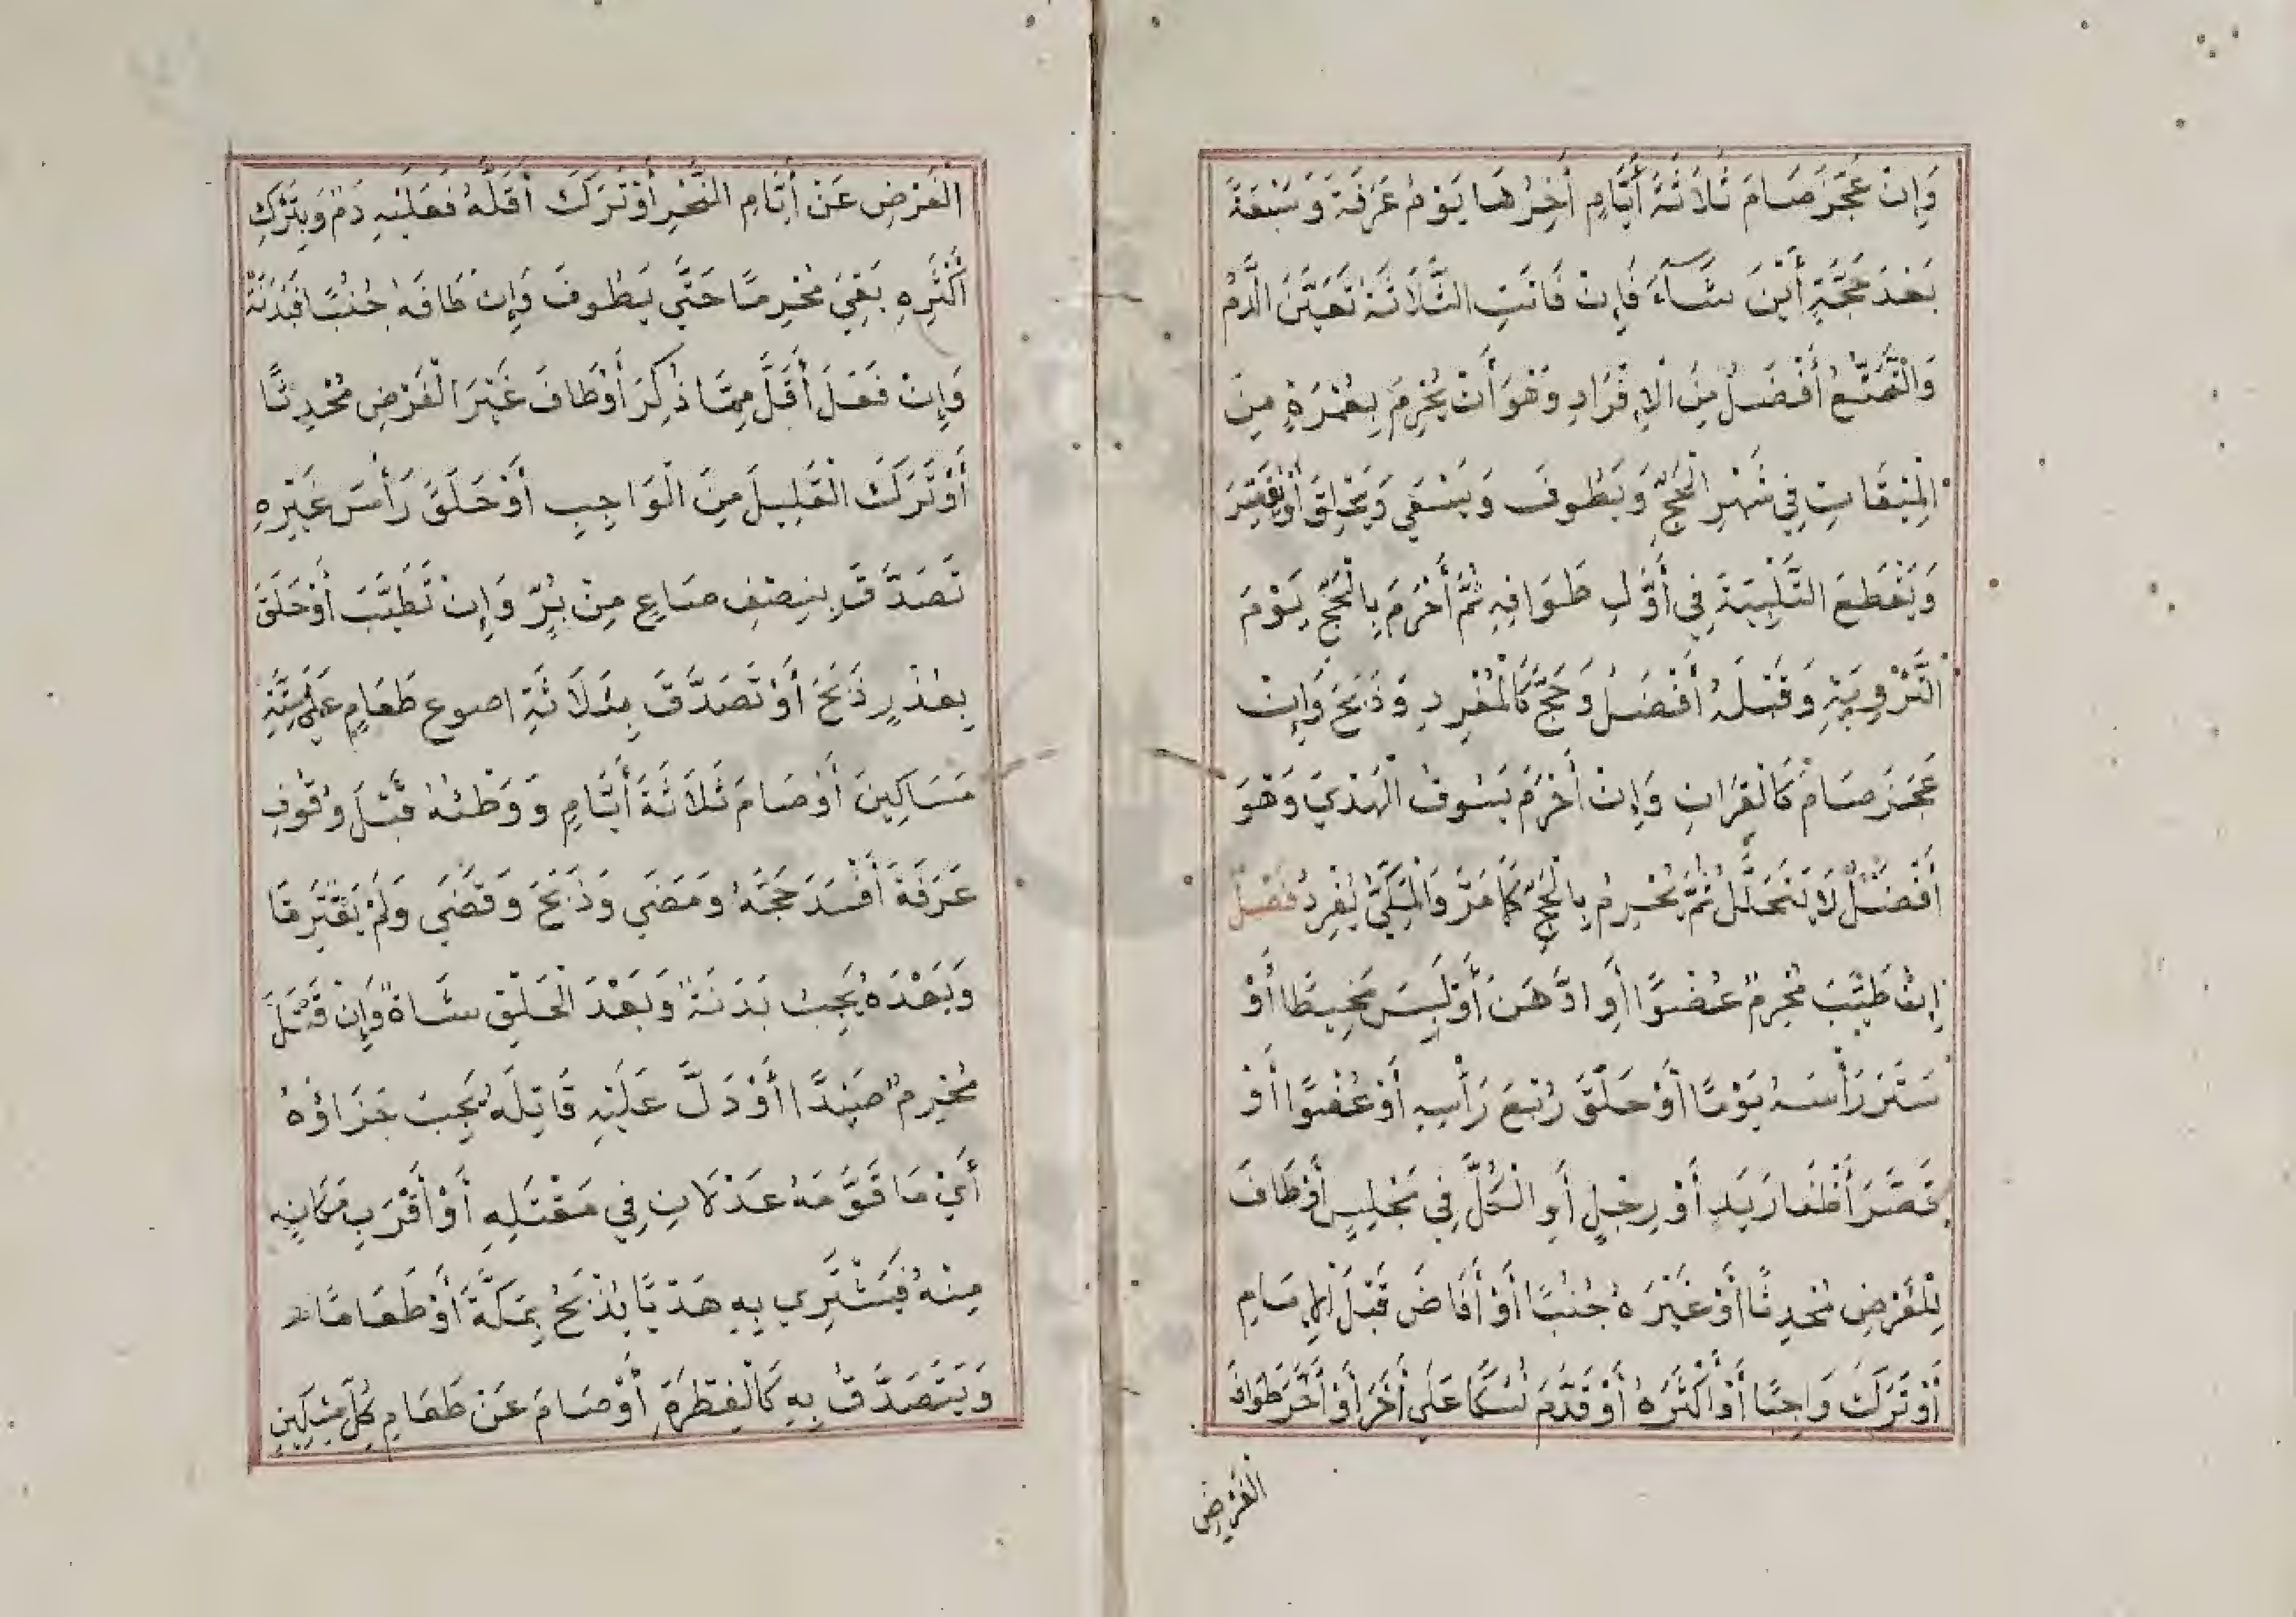 وَإِنْ عَجَزَ صَامَ ثَلَاثَةَ أَيَّامٍ أَخِرُهَا يَوْمُ عَرَفَةَ وَسَبْعَةً
بَعْدَ حَجَّةٍ أَيْنَ شَآءَ فَإِنْ فَاتَتِ الثَّلَاثَةُ تَعَيَّنَ الدَّمُ
وَالتَّمَتُّعُ أَفْضَلُ مِنَ الْإِفْرَادِ وَهُوَ أَنْ يُحْرِمَ بِعُمْرَةٍ مِنَ
الْمِيْقَاتِ فِي شَهْرِ الْحَجِّ وَيَطُوفَ وَيَسْعَى وَيَحْلِقَ أَوْ يُقَصِّرَ
وَيَقْطَعَ التَّلْبِيَةَ فِي أَوَّلِ طَوَافِهِ ثُمَّ أَحْرَمَ بِالْحَجِّ يَوْمَ
التَّرْوِيَةِ وَقَبْلَهُ أَفْضَلُ وَحَجَّ كَالْمُفْرِدِ وَذَبَحَ وَإِنْ
عَجَزَ صَامَ كَالْقِرَانِ وَإِنْ أَحْرَمَ بَسُوقُ الْهَدْيَ وَهُوَ
أَفْضَلُ لَا يَتَحَلَّلُ ثُمَّ يُحْرِمُ بِالْحَجِّ كَمَا مَرَّ وَالْمَكِّيُّ يُفْرِدُ فَصْلٌ
إِنْ طَيَّبَ مُحْرِمٌ عُضْوًا أَوِ ادَّهَنَ أَوْ لَبِسَ مَخِيطًا أَوْ
سَتَرَ رَأْسَهُ يَوْمًا أَوْ حَلَقَ رُبْعَ رَأْسِهِ أَوْ عُضْوًا أَوْ
قَصَّرَ أَظْفَارَ يَدٍ أَوْ رِجْلٍ أَوِ الْكُلَّ فِي مَجْلِسٍ أَوْ طَافَ
لِلْفَرْضِ مُحْدِثًا أَوْ غَيْرَهُ جُنُبًا أَوْ أَفَاضَ قَبْلَ الْإِمَامِ
أَوْ تَرَكَ وَاجِبًا أَوْ أَكْثَرَهُ أَوْ قَدَّمَ نُسُكًا عَلَى أَخَرَ أَوْ أَخَّرَ طَوَافَ
الْفَرْضِ
الْفَرْضِ عَنْ أَيَّامِ النَّحْرِ أَوْ تَرَكَ أَقَلَّهُ فَعَلَيْهِ دَمٌ وَبِتَرْكِ
أَكْثَرِهِ بَقِيَ مُحْرِمًا حَتَّى يَطُوفَ وَإِنْ طَافَهُ جُنُبًا فَبَدَنَةٌ
وَإِنْ فَعَلَ أَقَلَّ مِمَّا ذُكِرَ أَوْ طَافَ غَيْرَ الْفَرْضِ مُحْدِثًا
أَوْ تَرَكَ الْقَلِيلَ مِنَ الْوَاجِبِ أَوْ حَلَقَ رَأْسَ غَيْرِهِ
تَصَدَّقَ بِنِصْفِ صَاعٍ مِنْ بُرٍّ وَإِنْ تَطَيَّبَ أَوْ حَلَقَ
بِعُذْرٍ ذَبَحَ أَوْ تَصَدَّقَ بِثَلَاثَةِ اصوع طَعَامٍ عَلَى سِتَّةِ
مَسَاكِينَ أَوْ صَامَ ثَلَاثَةَ أَيَّامٍ وَوَطْئُهُ قَبْلَ وُقُوفِ
عَرَفَةَ أَفْسَدَ حَجَّهُ وَمَضَى وَذَبَحَ وَقَضَى وَلَمْ يَفْتَرِقَا
وَبَعْدَهُ يَجِبُ بَدَنَةٌ وَبَعْدَ الْحَلْقِ شَاةٌ وَإِنْ قَتَلَ
مُحْرِمٌ صَيْدًا أَوْ دَلَّ عَلَيْهِ قَاتِلَهُ يَجِبُ جَزَاؤُهُ
أَيْ مَا قَوَّمَهُ عَدْلَانِ فِي مَقْتَلِهِ أَوْ أَقْرَبِ مَكَانٍ
مِنْهُ فَيَشْتَرِي بِهِ هَدْيًا يُذْبَحُ بِمَكَّةَ أَوْ طَعَامًا
وَيَتَصَدَّقُ بِهِ كَالْفِطْرَةِ أَوْ صَامَ عَنْ طَعَامِ كُلِّ مِسْكِينٍ